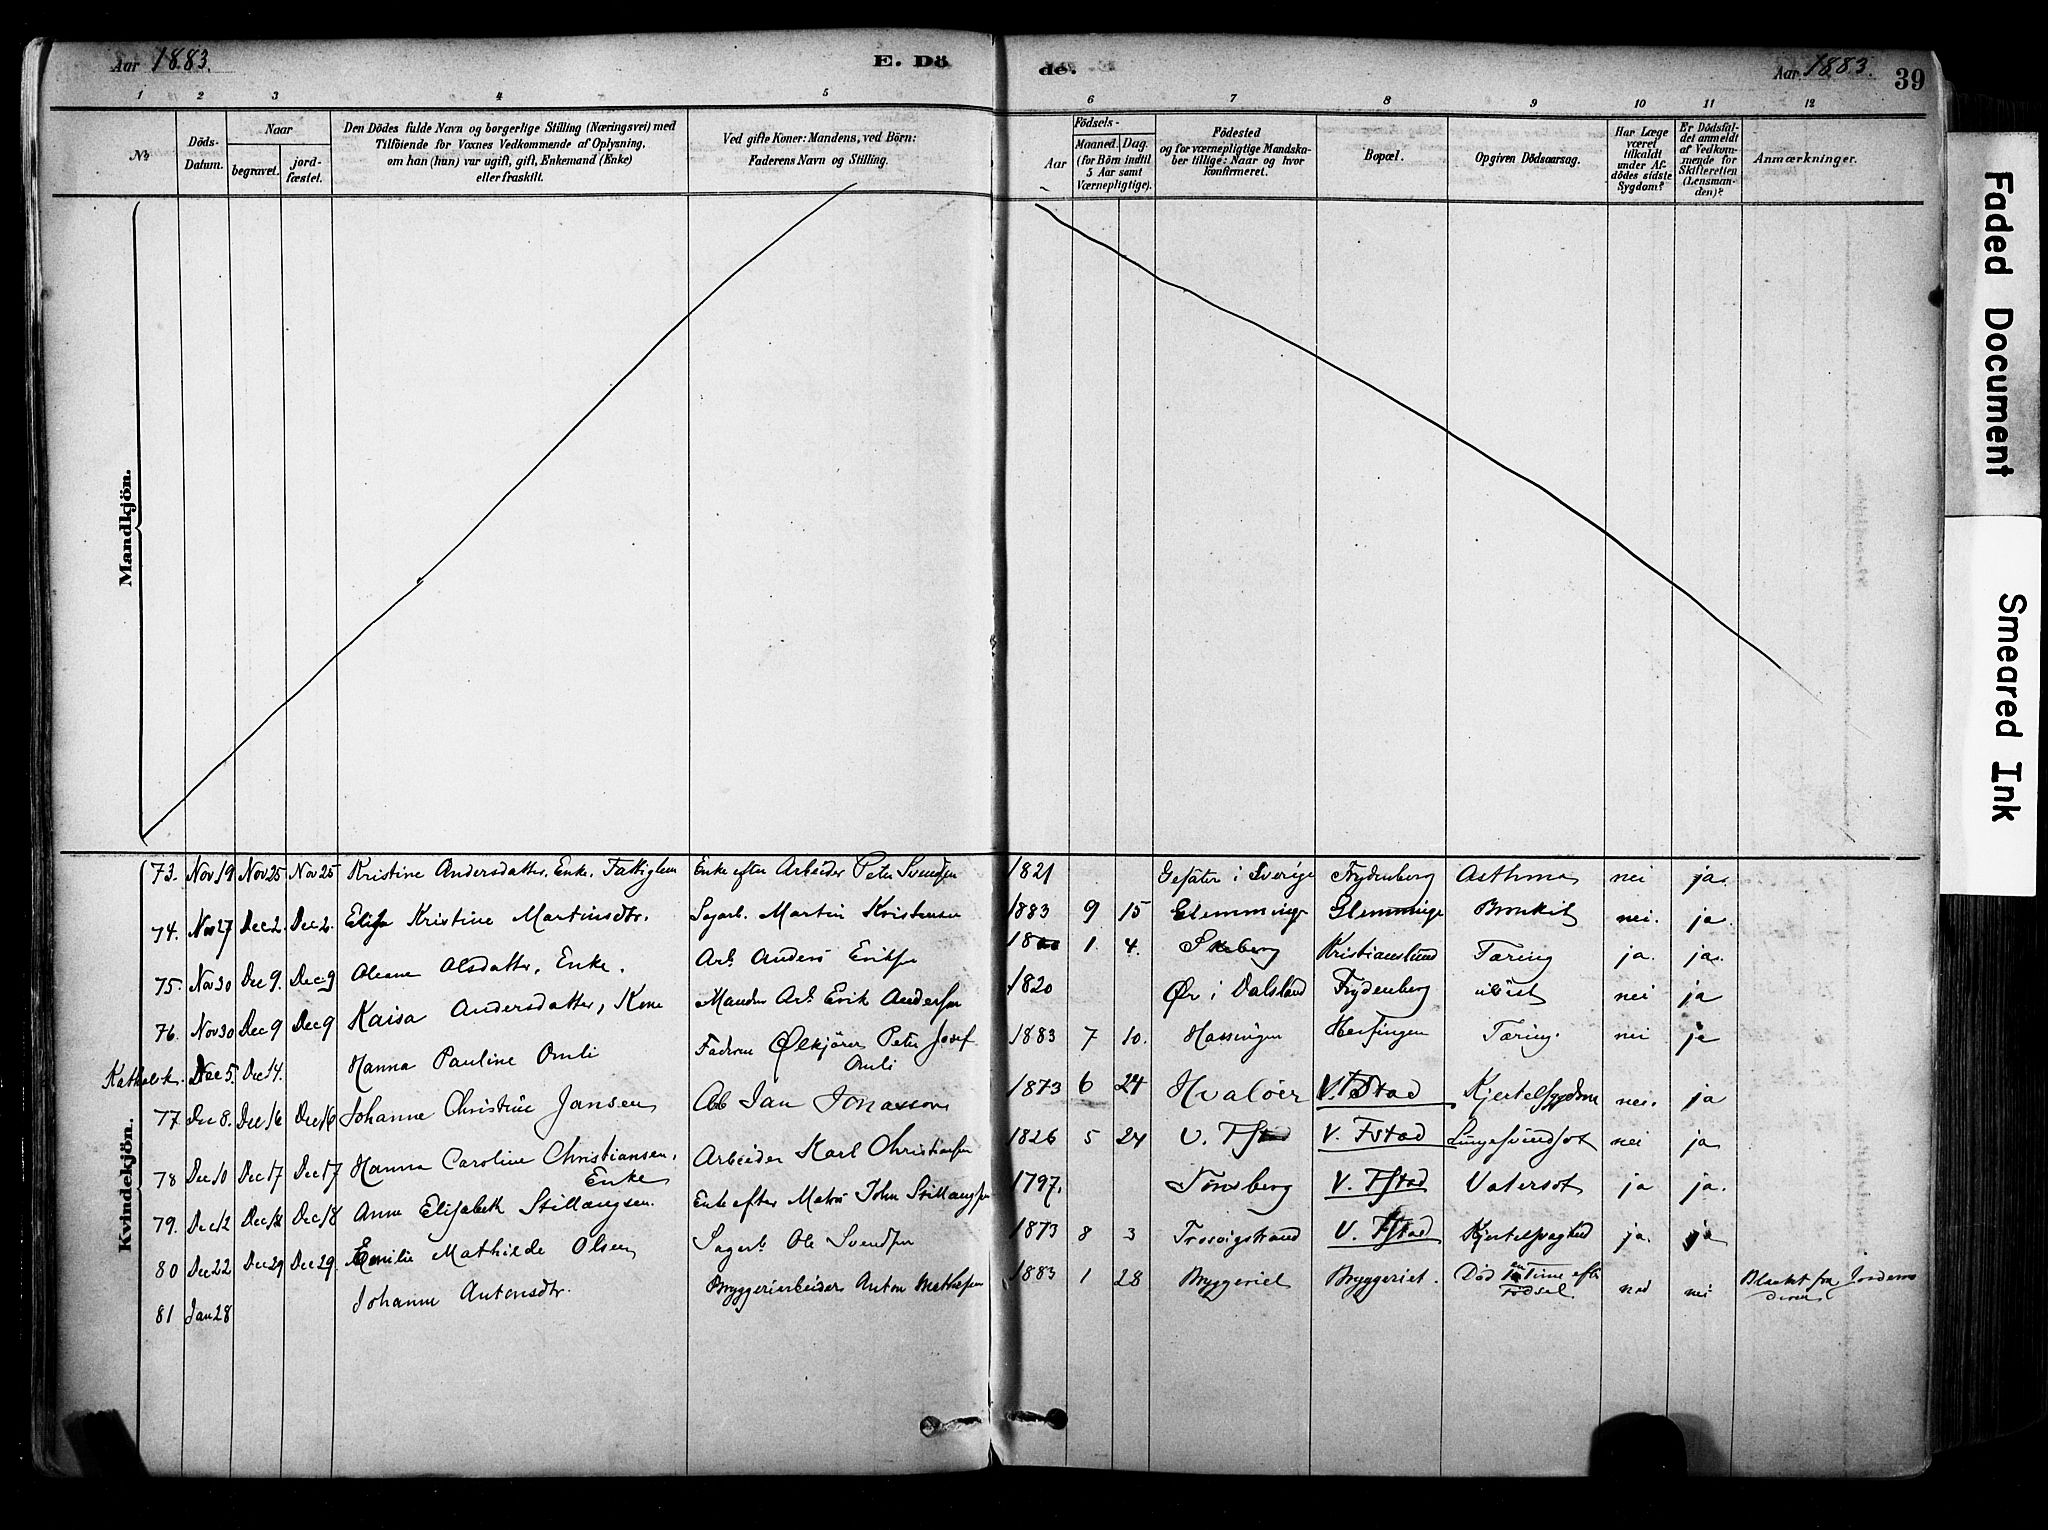 Aar 1883.
E. Dö de.
Aar 1883.
39
1 2 3 4 5 6 7 8 9 10 11 12
No
Döds-Datum.
Naar
begravet.
jord-fæstet.
Den Dödes fulde Navn og borgerlige Stilling (Næringsvei) med
Tilföiende for Voxnes Vedkommende af Oplysning,
om han (hun) var ugift, gift, Enkemand (Enke)
eller fraskilt.
Ved gifte Koner: Mandens, ved Börn:
Faderens Navn og Stilling.
Aar
Födsels-
Maaned. Dag.
(for Börn indtil
5 Aar samt
Værnepligtige).
Födested
og for værnepligtige Mandska-
ber tillige: Naar og hvor
konfirmeret.
Bopæl.
Opgiven Dödsaarsag.
Har Læge
været
tilkaldt
under Af-
dödes sidste
Sygdom?
Er Dödsfal-
det anmeldt
af Vedkom-
mende for
Skifteretten
(Lensman-
den)?
Anmærkninger.
Mandkjön.
Kvindekjön.
73. Nov 19 Nov 25 Nov 25 Kristine Andersdatter, Enke, Fattiglem Enke efter Arbeider Peter Svendsen 1821 Gesäter i Sverige Frydenberg Asthma nei ja.
74. Nov 27 Dec 2. Dec 2. Elise Kristine Martinsdtr. Sagarb. Martin Kristensen 1883 9 15 Glemminge Glemminge Bronkit nei. ja.
75. Nov 30 Dec 9. Dec 9 Oleane Olsdatter, Enke. Arb. Anders Eriksen 1 4. Skeberg Kristianslund Tæring ja. ja.
76. Nov 30 Dec 9 Dec 9 Kaisa Andersdatter, Kone Manden Arb. Erik Andersen 1820 Ør i Dalsland Frydenberg nei ja
Katholsk. Dec 5. Dec 14. Hanna Pauline Omli Faderen Ølkjører Peter Josef Omli 1883 7 10. Hassingen Hassingen Tæring. nei ja
77 Dec 8. Dec 16 Dec 16 Johanne Christine Jansen Arb Jan Jonasson 1873 6 24 Hvaløer V. Fstad Kjertelsygdom nei. ja
78 Dec 10 Dec 17 Dec 17 Hanna Caroline Christiansen, Enke Arbeider Karl Christiansen 1826 5 24 V. Fstad V. Fstad Lungesvindsot nei ja
79. Dec 12 Dec 18 Dec 18 Anne Elisabeth Stillaugsen. Enke efter Matros John Stillaugsen 1797. Tønsberg V. Fstad Vatersot ja ja.
80 Dec 22 Dec 29 Dec 29. Emilie Mathilde Olsen Sagarb. Ole Svendsen 1873 8 3 Trosvigstrand V. Fstad Kjertelsvaghed ja. ja
81 Jan 28 Johanne Antonsdtr. Bryggeriarbeider Anton Mathisen 1883 1 28 Bryggeriet Bryggeriet. Død en Time efter Fødsel nei nei Blanket fra Jordemoderen
Faded Document
Smeared Ink